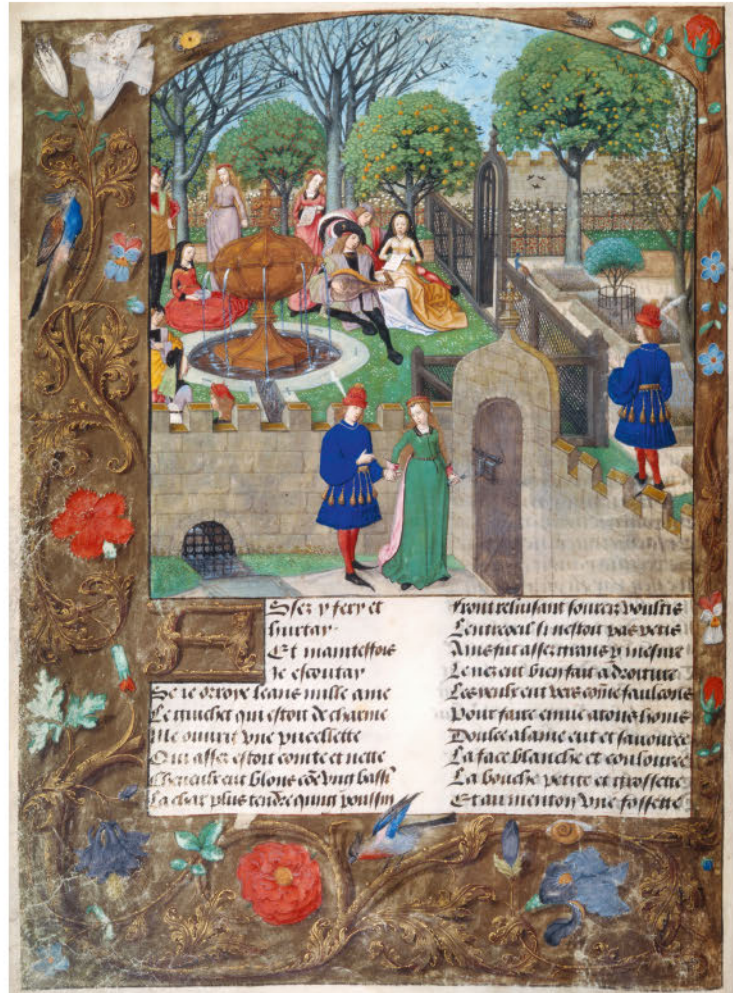 Assez y fery et
hurtay
Et maintesfois
Je escoutay
Se ie orroye leans nulle ame
Le guichet qui estoit de charme
Me ouurit vne pucellette
Qui assez estoit cointe et nette
Cheueulx eut blons cõe vng bassĩ
La char plus tendre qung poussin
Front reluisant sourcilz voultis
Lentreoeil si nestoit pas petis
Ains fut assez grans p mesure
Le nez eut bien fait a droiture
Les yeulx eut vers cõme faulcons
Pour faire enuie a tous homs
Doulce alaine eut et sauouree
La face blanche et coulouree
La bouche petite et grossette
Et au menton vne fossette